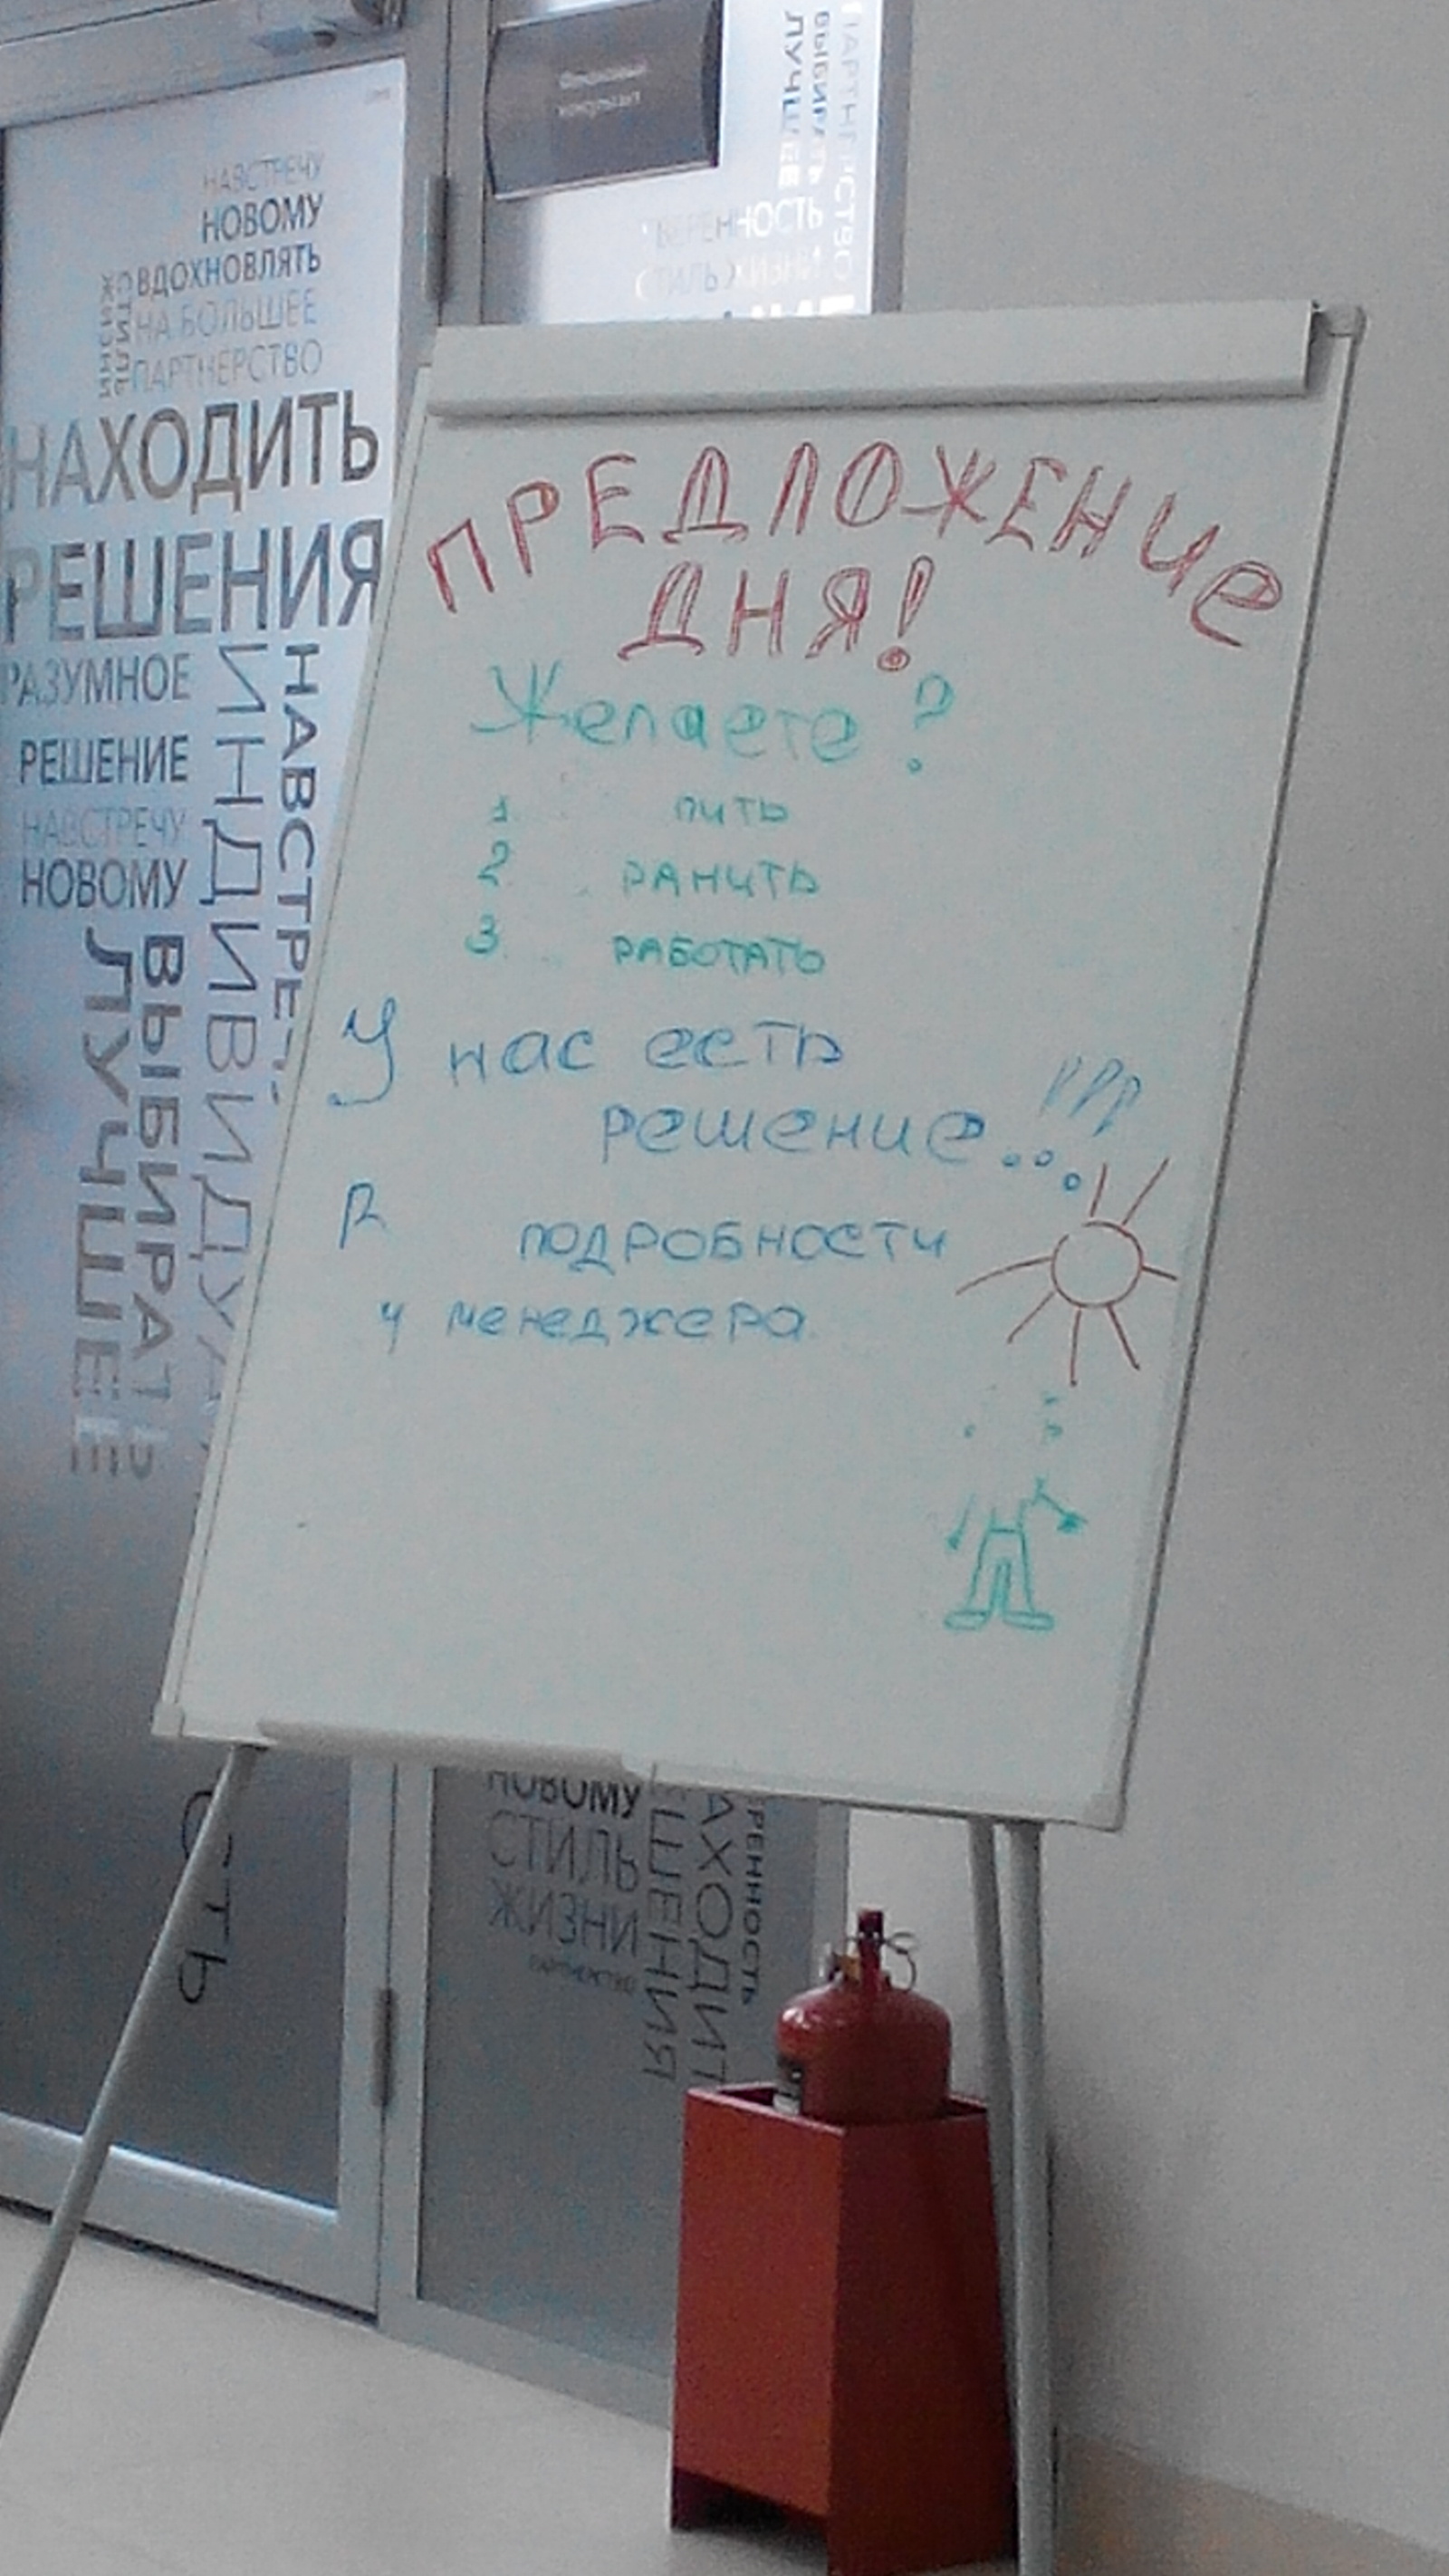 НАВСТРЕЧУ
НОВОМУ
ВДОХНОВЛЯТЬ
НА БОЛЬШЕЕ
ПАРТНЕРСТВО
СТИЛЬ
ЖИЗНИ
НАХОДИТЬ
РЕШЕНИЯ
РАЗУМНОЕ
РЕШЕНИЕ
НАВСТРЕЧУ
НОВОМУ
ВЫБИРАТЬ
ЛУЧШЕЕ
ПАРТНЕРСТВО
ВЫБИРАТЬ
ЛУЧШЕЕ
СТИЛЬ ЖИЗНИ
ПРЕДЛОЖЕНИЕ
ДНЯ!
Желаете?
1. пить
2. РАНИТЬ
3. РАБОТАТЬ
У нас есть
решение...!!!
ПОДРОБНОСТИ
у менеджера
НОВОМУ
СТИЛЬ
ЖИЗНИ
ПАРТНЕРСТВО